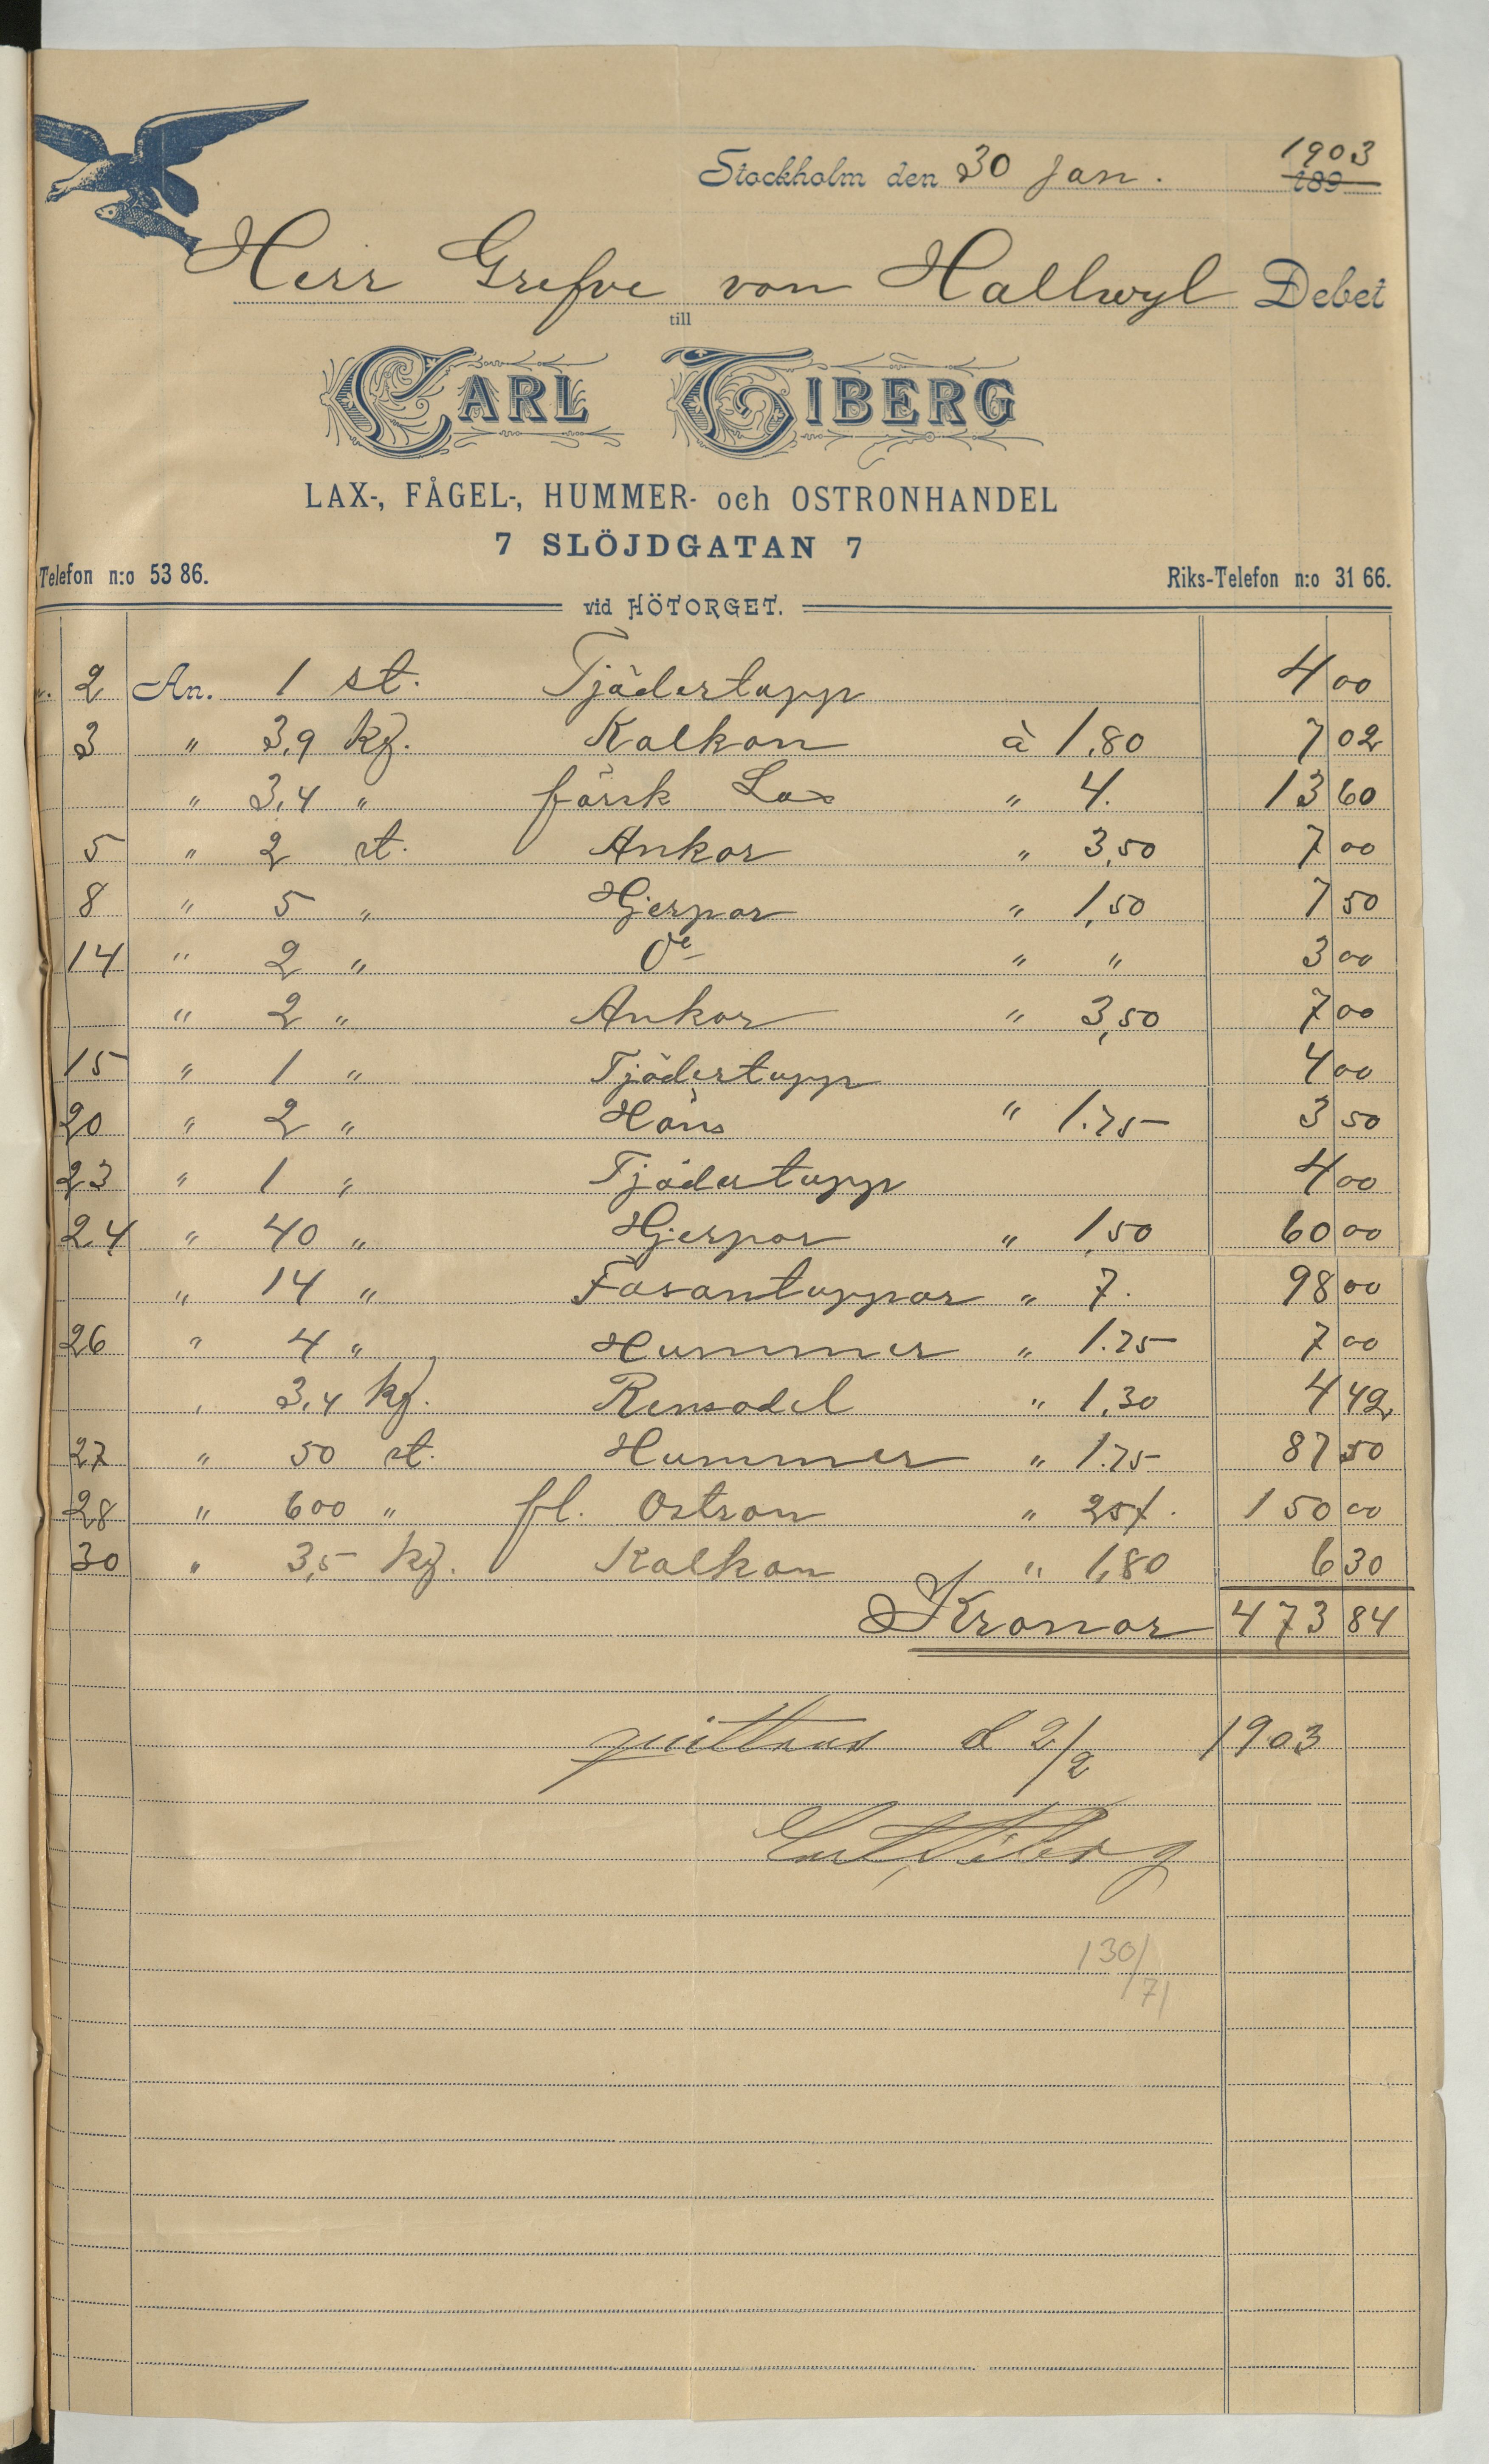 Stockholm den 30 Jan. 1903
189
Herr Grefve von Hallwyl Debet
till
CARL TIBERG
LAX-, FÅGEL-, HUMMER- och OSTRONHANDEL
7 SLÖJDGATAN 7
Telefon n:o 53 86. Riks-Telefon n:o 31 66.
vid HÖTORGET.
2 An. 1 st. Tjädertupp 4 00
3 " 3,9 kg. Kalkon à 1,80 7 02
" 3,4 " färsk Lax " 4. 13 60
5 " 2 st. Ankor " 3,50 7 00
8 " 5 " Hjerpar " 1,50 7 50
14 " 2 " Do " " 3 00
" 2 " Ankor " 3,50 7 00
15 " 1 " Tjädertupp 4 00
20 " 2 " Höns " 1.75 3 50
23 " 1 " Tjädertupp 4 00
24 " 40 " Hjerpar " 1,50 60 00
" 14 " Fasantuppar " 7. 98 00
26 " 4 " Hummer " 1.75 7 00
" 3,4 kg. Rensadel " 1,30 4 42
27 " 50 st. Hummer " 1.75 87 50
28 " 600 " fl. Ostron " 25/. 150 00
30 " 3,5 kg. Kalkon " 1,80 6 30
Kronor 473 84
qvitteras d 2/2 1903
Carl Tiberg
130/71